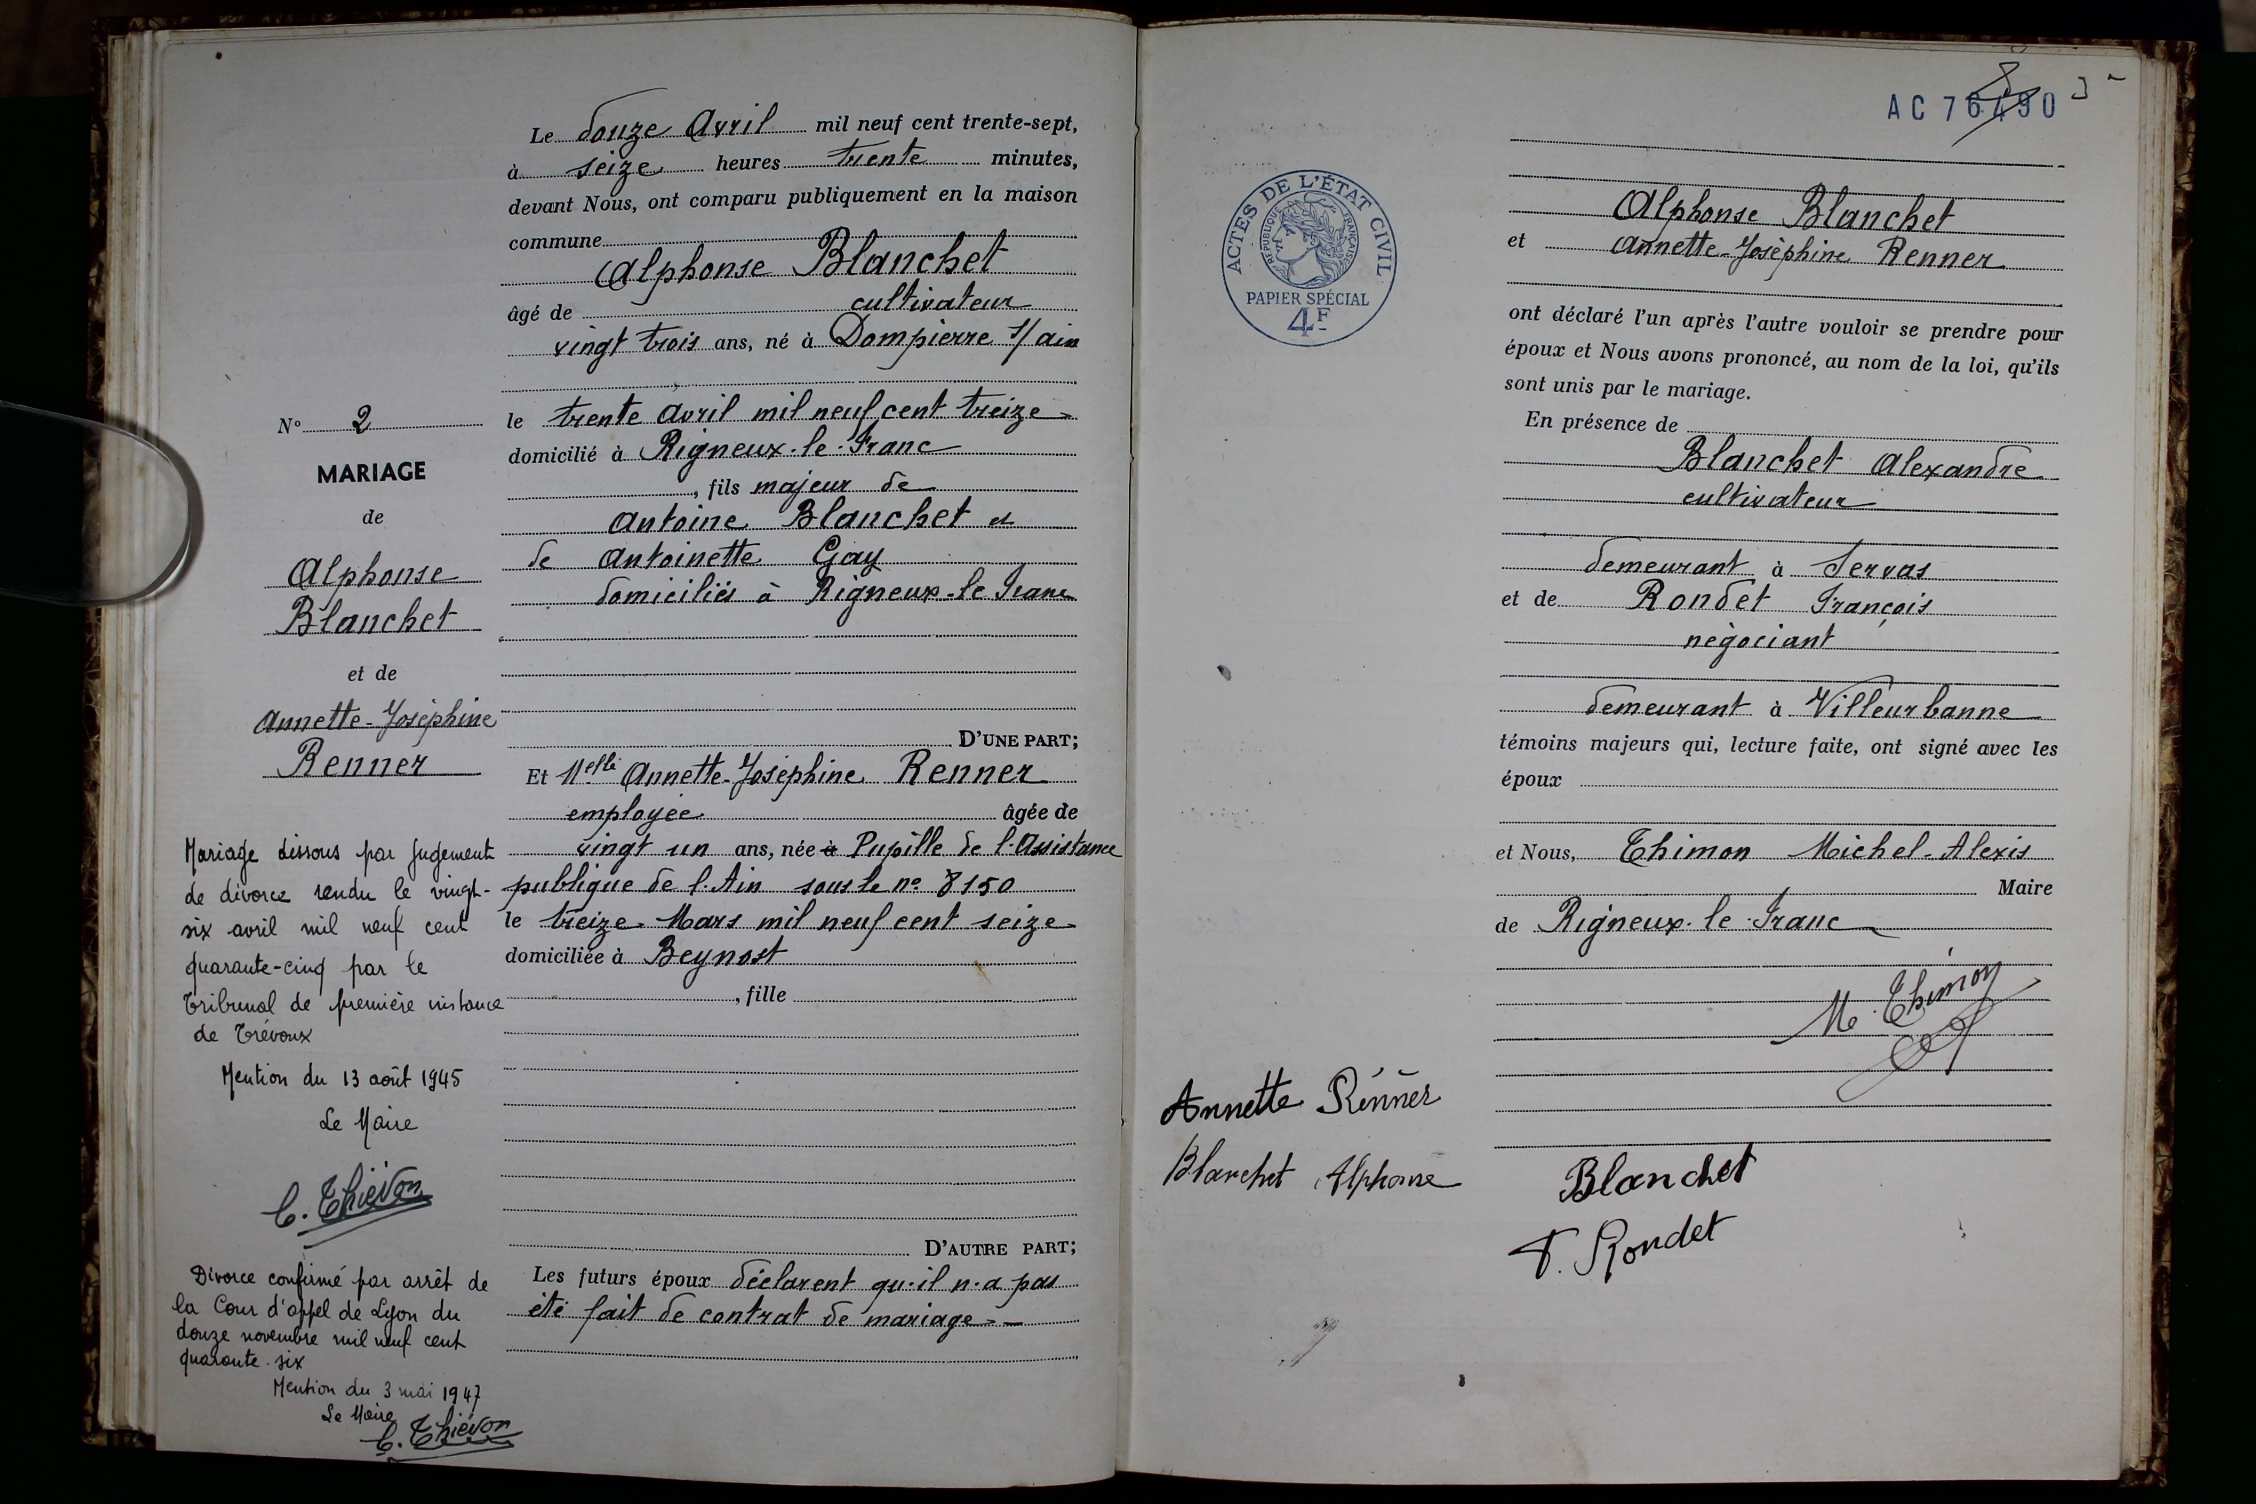 N° 2
MARIAGE
de
Alphonse
Blanchet
et de
Annette-Joséphine
Renner
Mariage dissous par jugement
de divorce rendu le vingt-
six avril mil neuf cent
quarante-cinq par le
Tribunal de première instance
de Trévoux
Mention du 13 août 1945
Le Maire
C. Thiévon
Divorce confirmé par arrêt de
la Cour d'appel de Lyon du
douze novembre mil neuf cent
quarante-six
Mention du 3 mai 1947
Le Maire
C. Thiévon
Le douze Avril mil neuf cent trente-sept,
à seize heures trente minutes,
devant Nous, ont comparu publiquement en la maison
commune
Alphonse Blanchet
âgé de cultivateur
vingt trois ans, né à Dompierre s/ ain
le trente Avril mil neuf cent treize
domicilié à Rigneux-le-Franc
, fils majeur de
Antoine Blanchet et
de Antoinette Gay
domiciliés à Rigneux-le-Franc
D'UNE PART;
Et Melle Annette-Joséphine Renner
employée âgée de
vingt un ans, née à Pupille de l'Assistance
publique de l'Ain sous le n° 8150
le treize Mars mil neuf cent seize
domiciliée à Beynost
, fille
D'AUTRE PART;
Les futurs époux déclarent qu'il n'a pas
été fait de contrat de mariage
AC 76490
ACTES DE L'ÉTAT CIVIL
RÉPUBLIQUE FRANÇAISE
PAPIER SPÉCIAL
4F
Alphonse Blanchet
et Annette-Joséphine Renner
ont déclaré l'un après l'autre vouloir se prendre pour
époux et Nous avons prononcé, au nom de la loi, qu'ils
sont unis par le mariage.
En présence de
Blanchet Alexandre
cultivateur
demeurant à Servas
et de Rondet François
négociant
demeurant à Villeurbanne
témoins majeurs qui, lecture faite, ont signé avec les
époux
et Nous, Thimon Michel-Alexis
Maire
de Rigneux-le-Franc
M. Thimon
Annette Renner
Blanchet Alphonse
Blanchet
F. Rondet